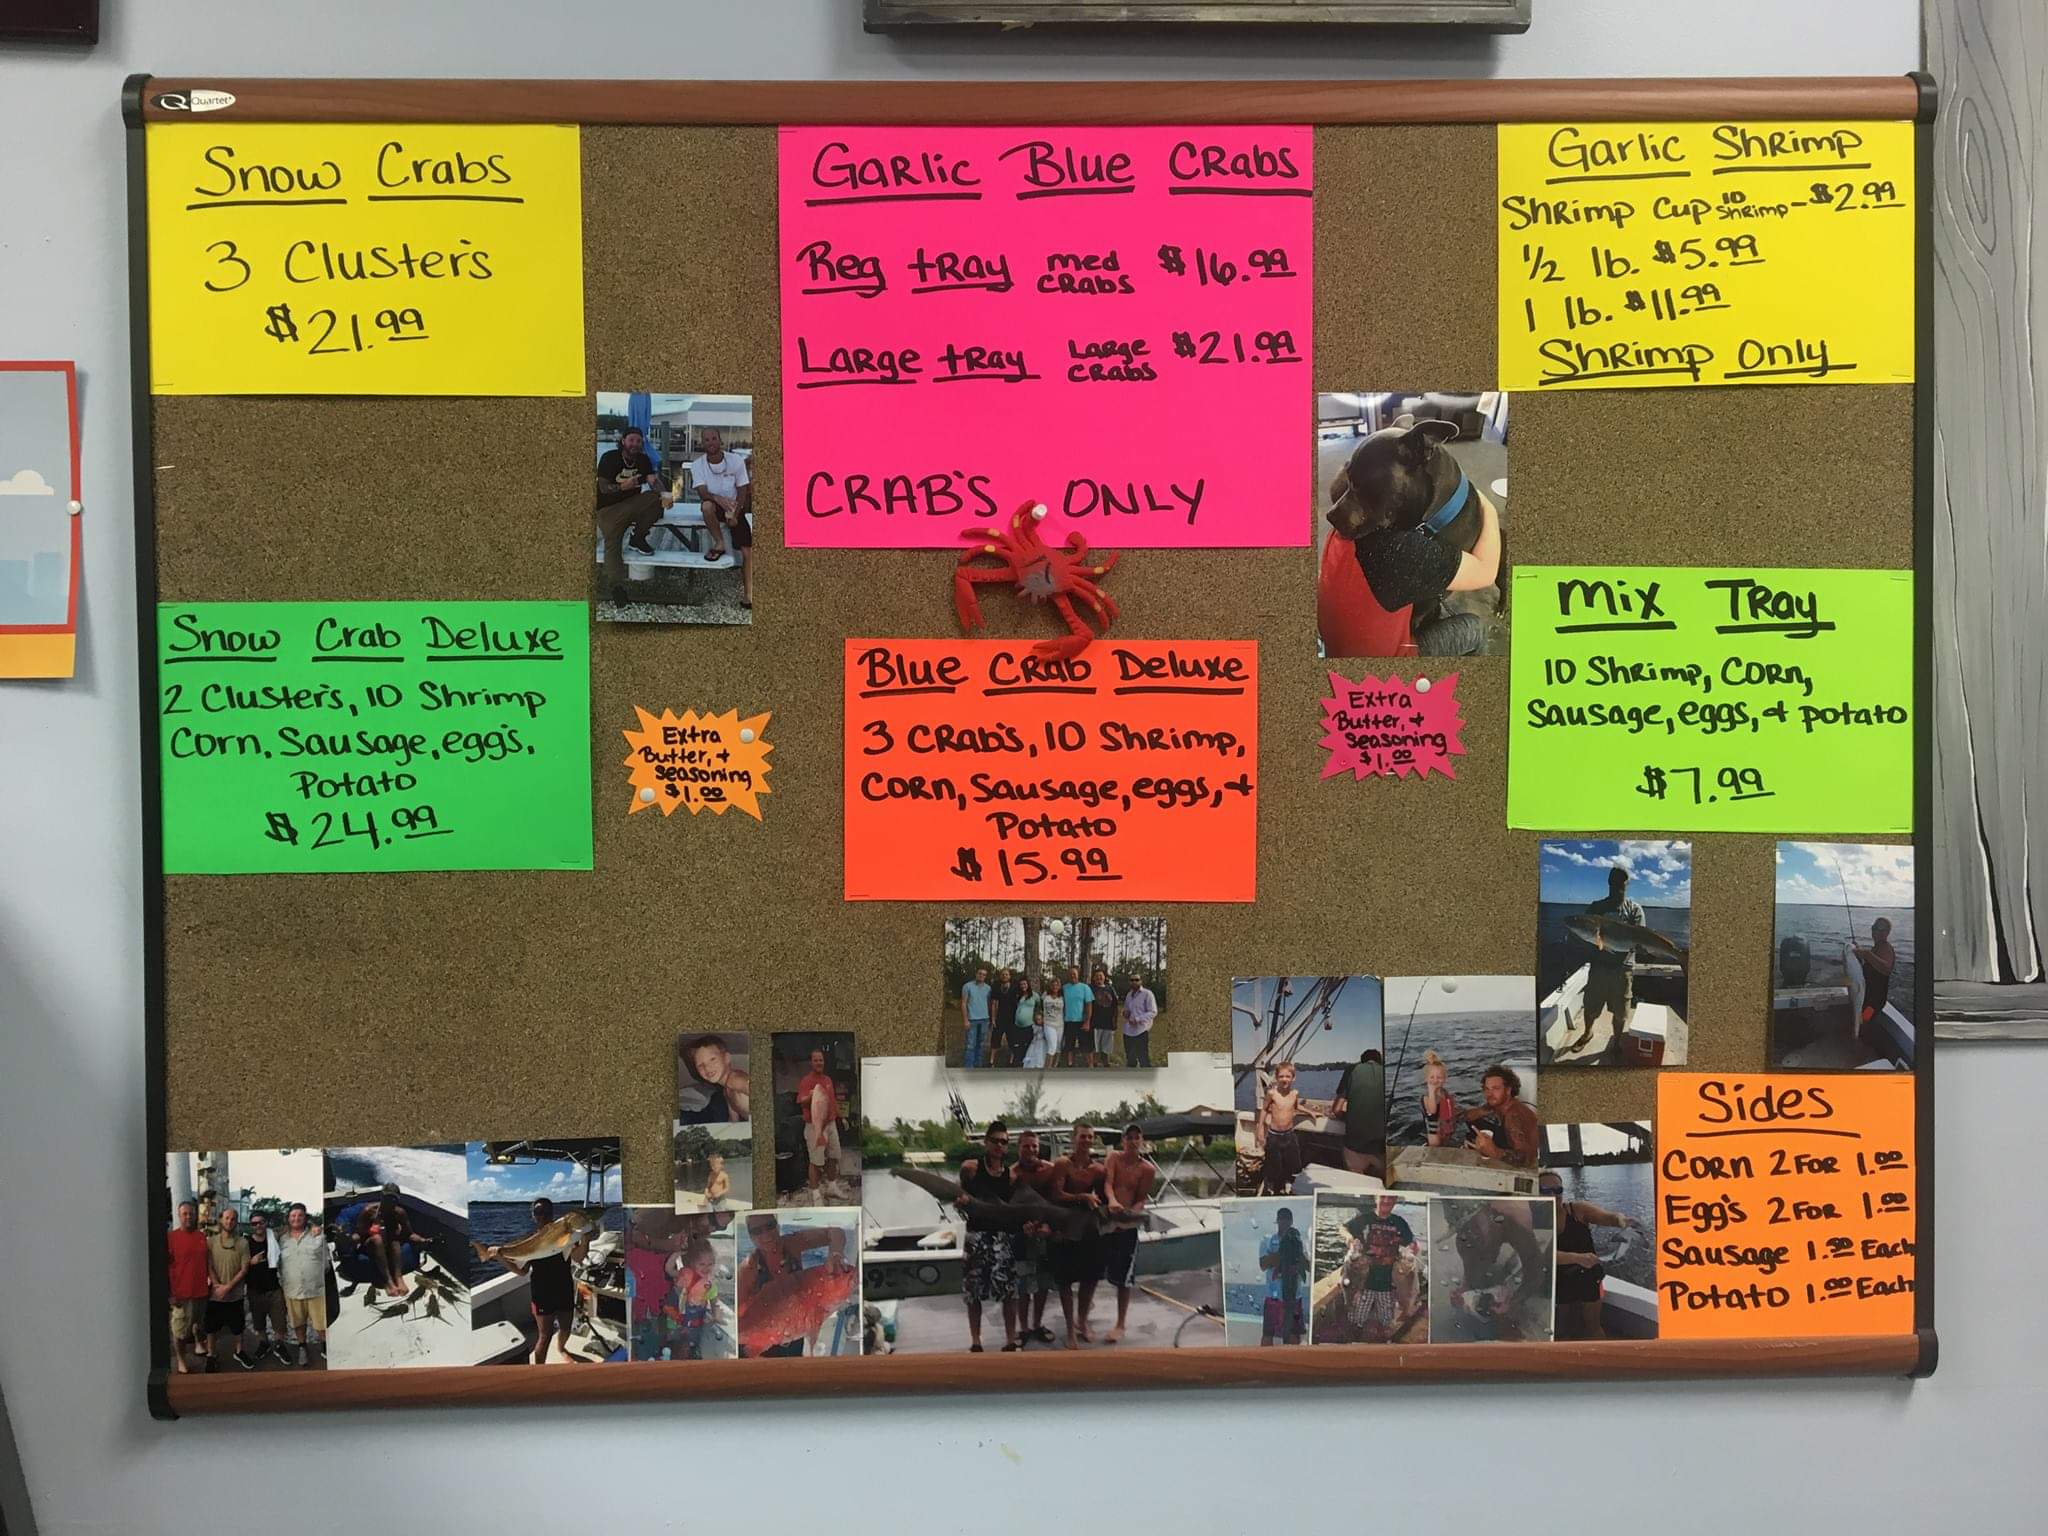 Quartet
Snow Crabs
3 Cluster's
$21.99
Garlic Blue Crabs
Reg tray med crabs $16.99
Large tray Large crabs $21.99
CRAB'S ONLY
Garlic Shrimp
Shrimp Cup 10 Shrimp - $2.99
1/2 lb. $5.99
1 lb. $11.99
Shrimp Only
Snow Crab Deluxe
2 Cluster's, 10 Shrimp
Corn, Sausage, egg's,
Potato
$24.99
Extra
Butter, +
Seasoning
$1.00
Blue Crab Deluxe
3 Crab's, 10 Shrimp,
Corn, Sausage, eggs, +
Potato
$15.99
Extra
Butter, +
Seasoning
$1.00
Mix Tray
10 Shrimp, Corn,
Sausage, eggs, + potato
$7.99
Sides
Corn 2 For 1.00
Egg's 2 For 1.00
Sausage 1.50 Each
Potato 1.00 Each